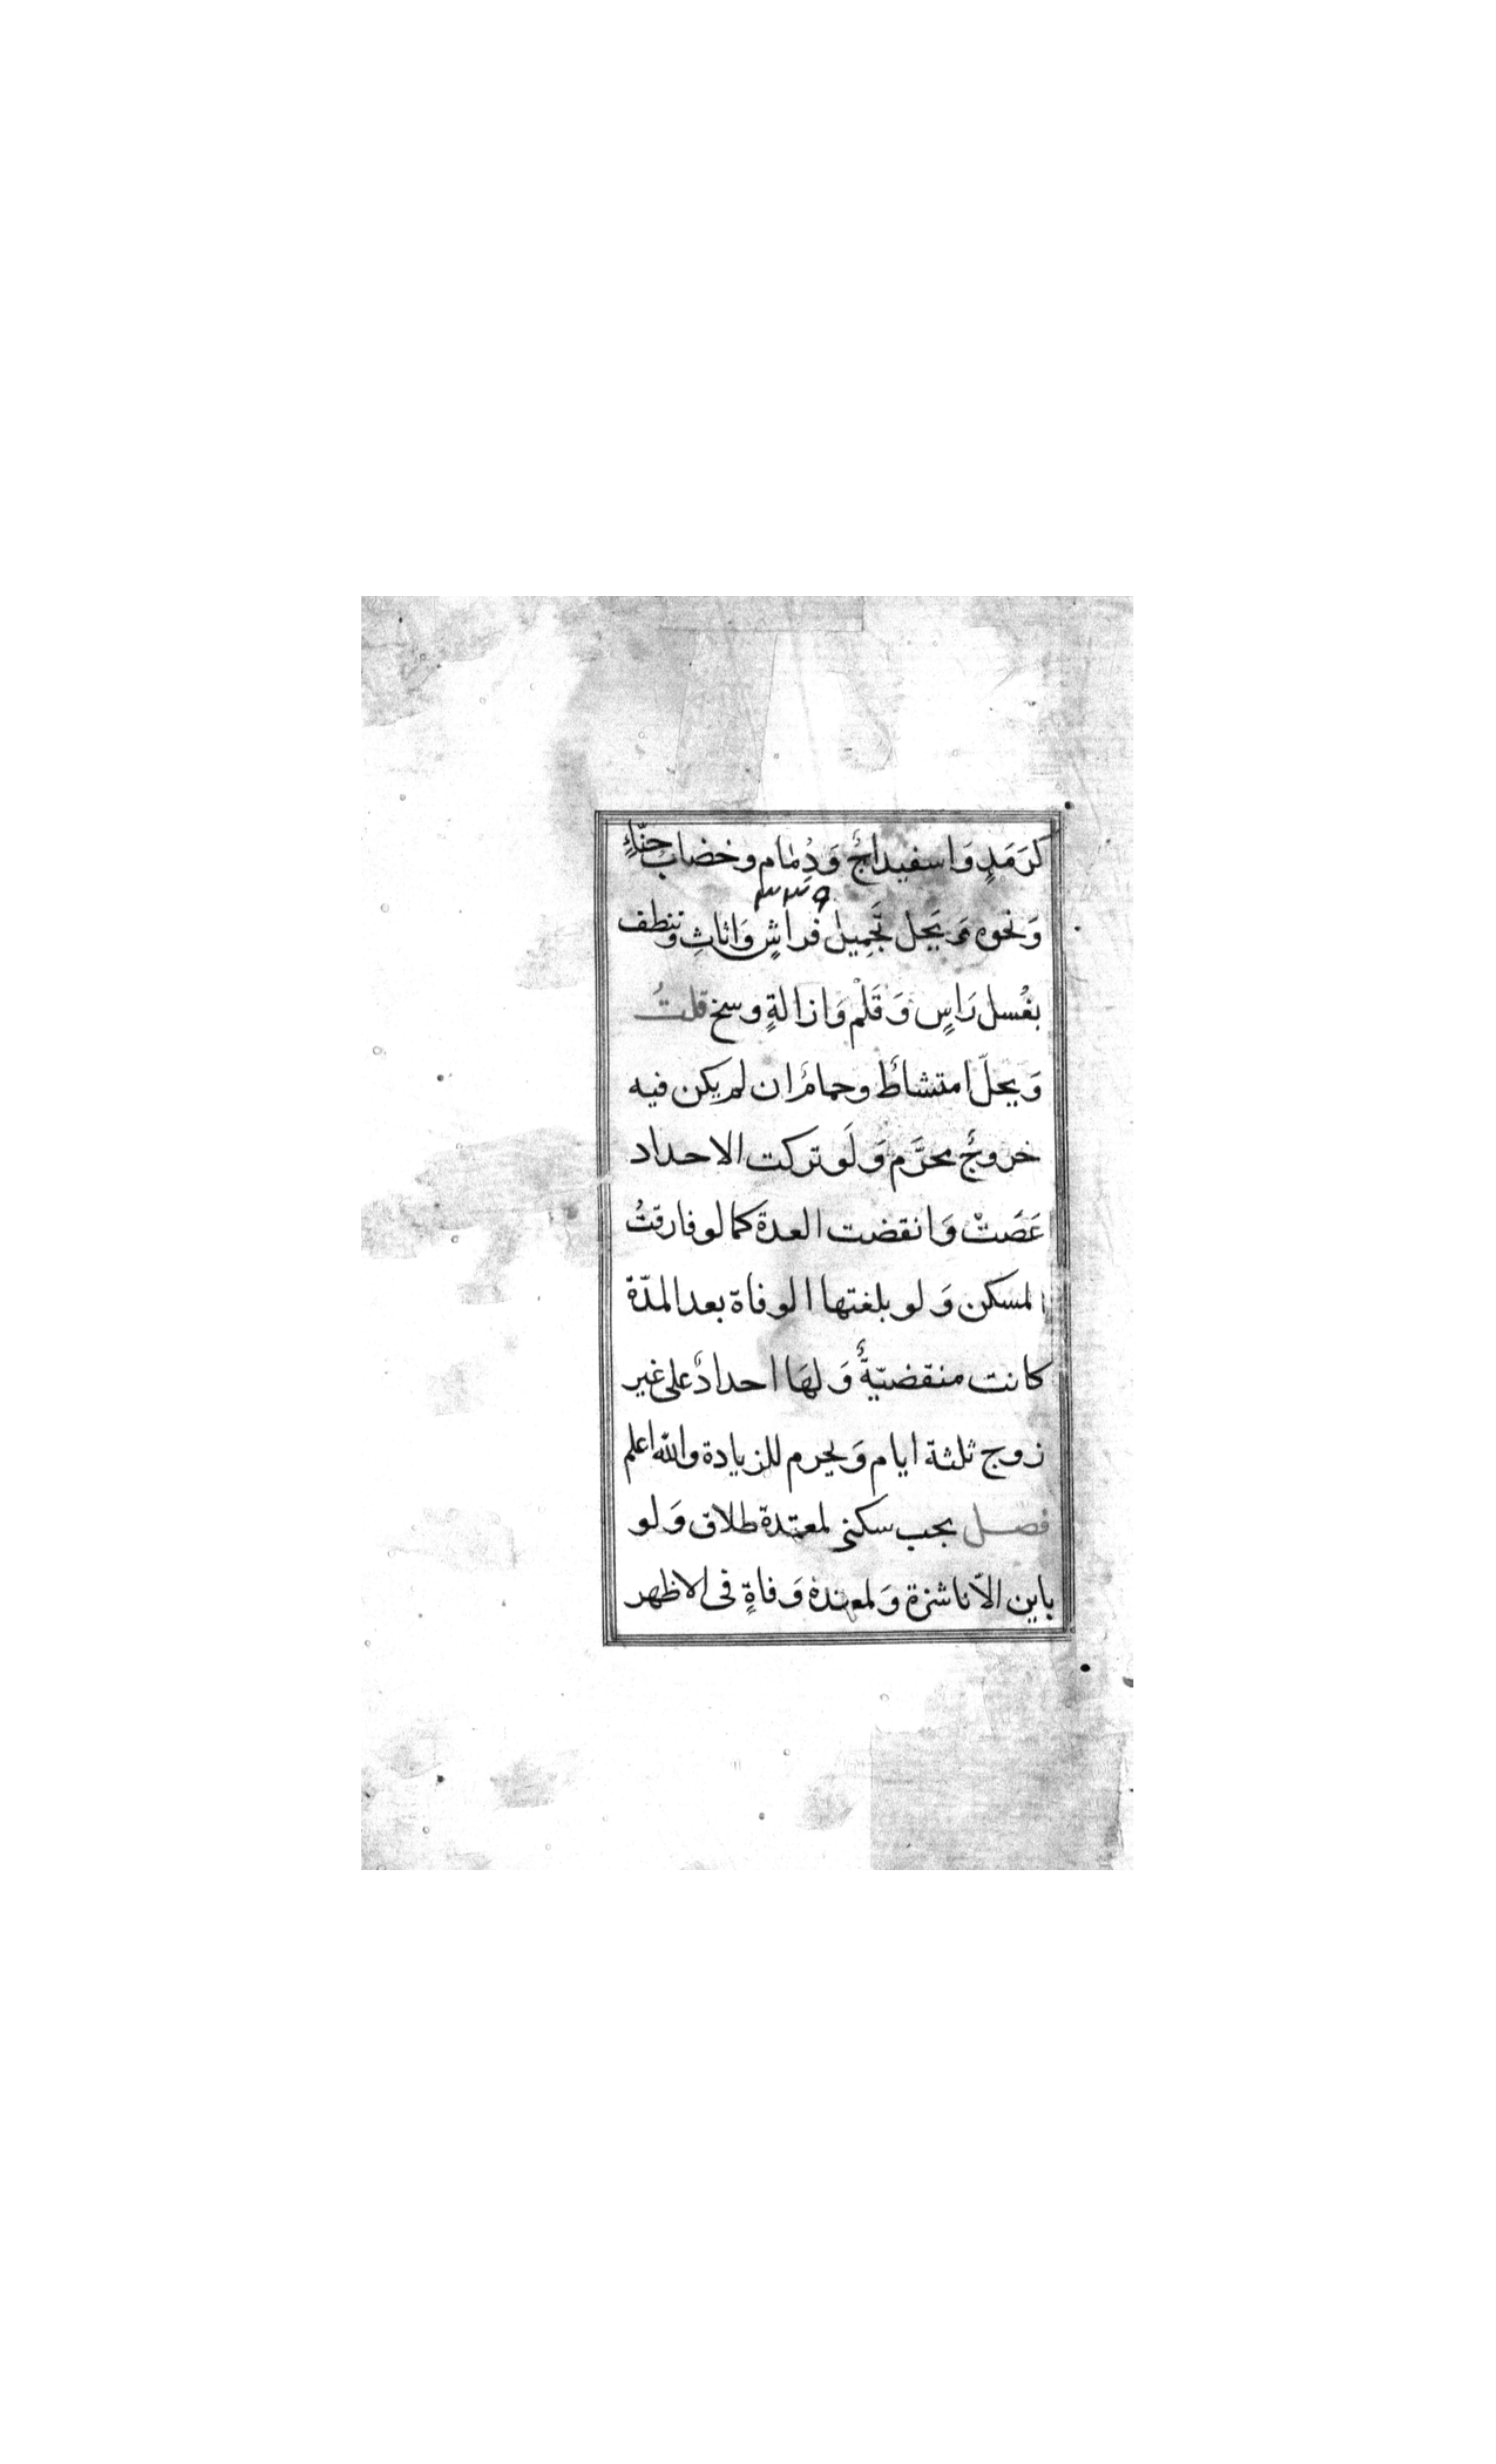 كرَمَدٍ وَاسفيداجٌ وَدِمَام وخضاب حِنَّاءٍ
٣٣٩
وَنحوه وَيَحل تَجميل فراشٍ وَاثاثِ وتنظف
بغُسل رَاسٍ وَقَلْم وَازالةٍ وسخ قلتُ
وَيحلّ امتشاطٌ وحمامٌ ان لم يكن فيه
خروجٌ محرَّم وَلَو تركت الاحداد
عَصَتْ وَانقضت العدة كما لو فارقتُ
المسكن وَلو بلغتها الوفاة بعد المدّة
كانت منقضيّةٌ وَلهَا احدادٌ على غير
زوج ثلثة ايام وَيحرم للزيادة والله اعلم
فصل يجب سكنى لمعتدة طلاق وَلو
باين الاّ ناشزة وَلمعتدة وَفاةٍ في الاظهر